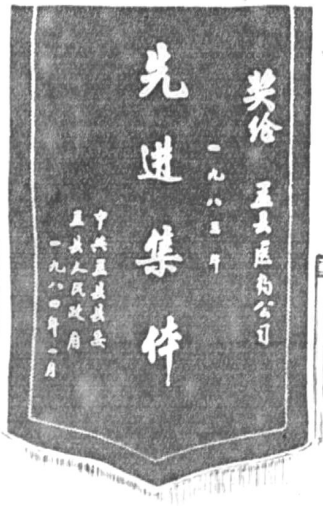 奖给 县医药公司
一九八三年
先进集体
中共 县县委
县人民政府
一九八四年一月